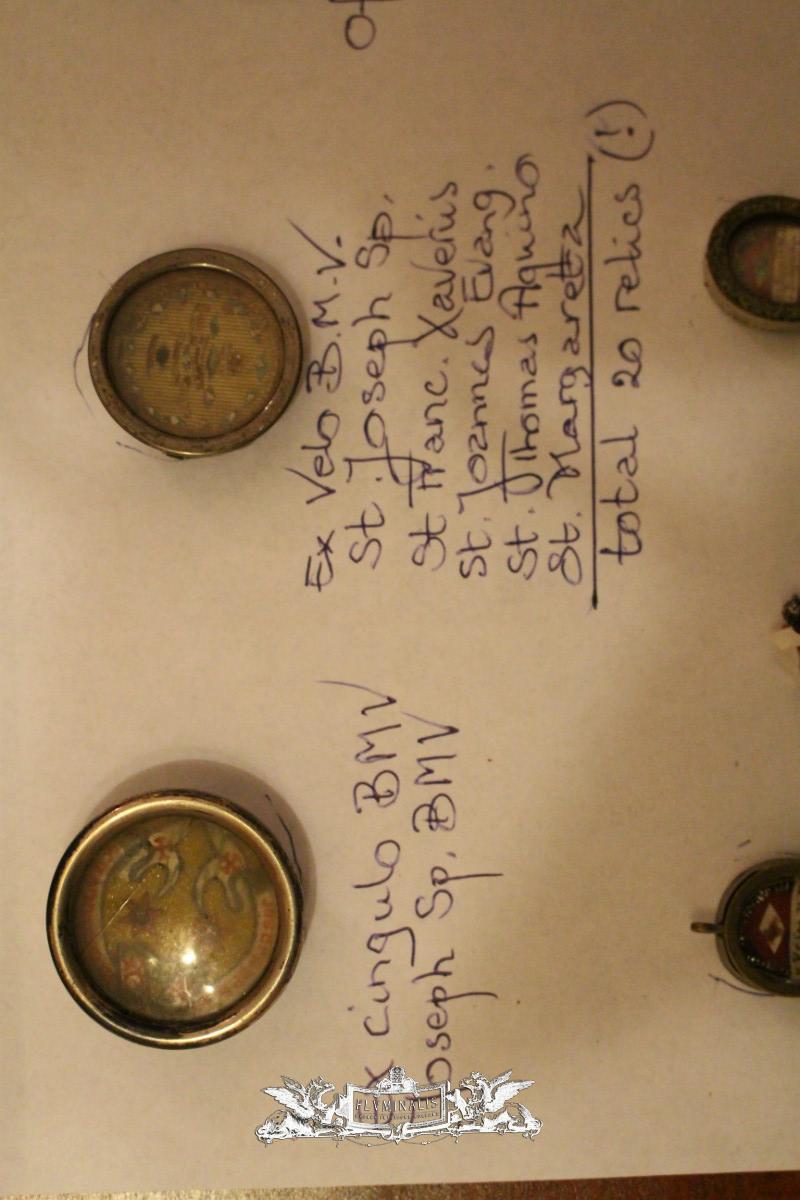 Ex Velo B.M.V.
St. Joseph Sp.
St Franc. Xaverius
St. Joannes Evang.
St. Thomas Aquino
St. Margaretta
total 20 relics (!)
Ex Cingulo BMV
Joseph Sp. BMV
FLVMINALIS